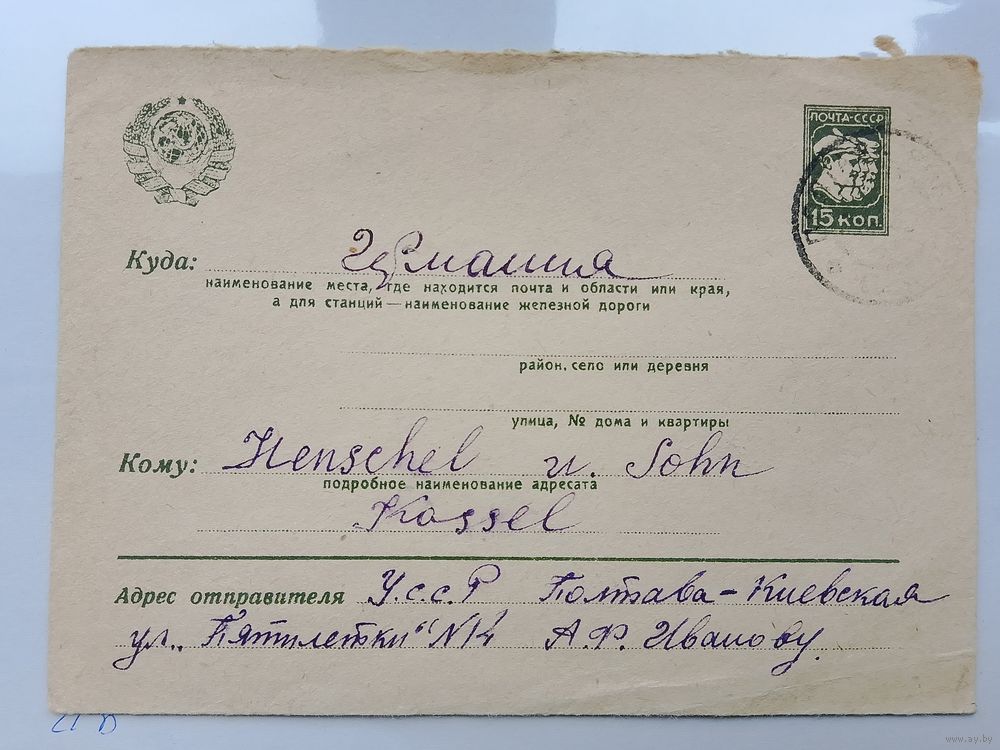 ПОЧТА-СССР
15 КОП.
Куда: Германия
наименование места, где находится почта и области или края,
а для станций — наименование железной дороги
район, село или деревня
улица, № дома и квартиры
Кому: Henschel u. Sohn
подробное наименование адресата
Kassel
Адрес отправителя У.с.с.Р Полтава-Киевская
ул. „Пятилетки“ N14 А.Ф. Иванову.
www.ay.by